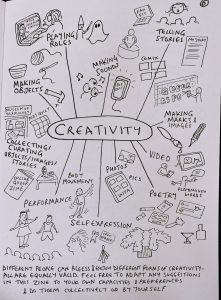 PLAYING
ROLES
TELLING
STORIES
MAKING
SOUND
COMIX
MAKING
OBJECTS
MAKING
MARKS &
IMAGES
CREATIVITY
COLLECTING/
CURATING
OBJECTS/IMAGES/
STORIES
VIDEO
PHOTOS
PICS
BODY
MOVEMENT
POETRY
PERFORMANCE
SELF EXPRESSION
DIFFERENT PEOPLE CAN ACCESS & ENJOY DIFFERENT FORMS OF CREATIVITY-
ALL ARE EQUALLY VALID. FEEL FREE TO ADAPT ANY SUGGESTIONS
IN THIS ZINE TO YOUR OWN CAPACITIES & PREFERENCES
& DO THEM COLLECTIVELY OR BY YOURSELF